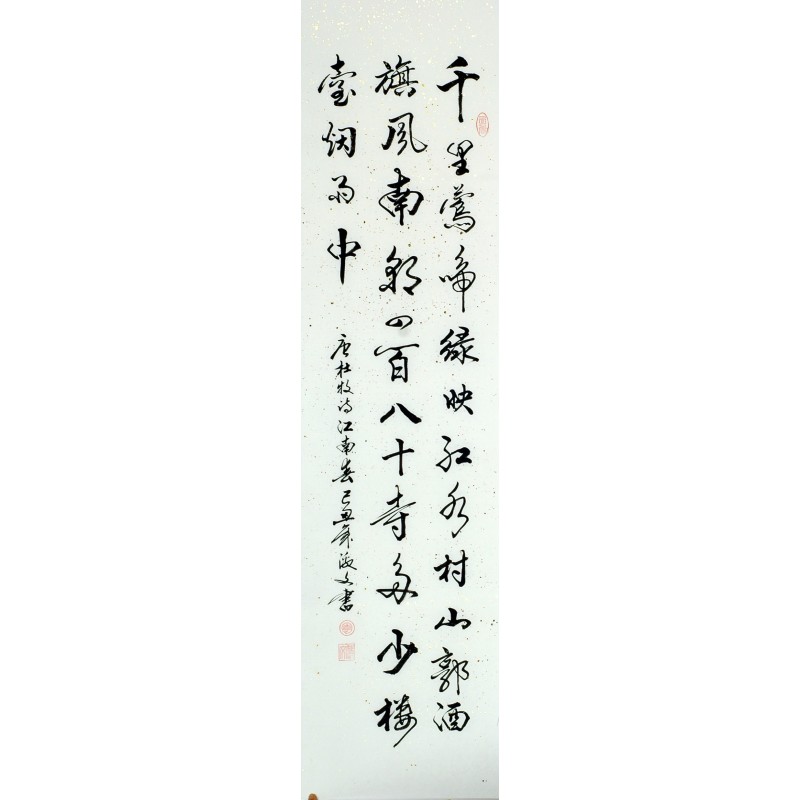 千里鶯啼緑映紅水村山郭酒
旗風南朝四百八十寺多少樓
臺烟雨中
唐杜牧诗江南春己丑年海文書